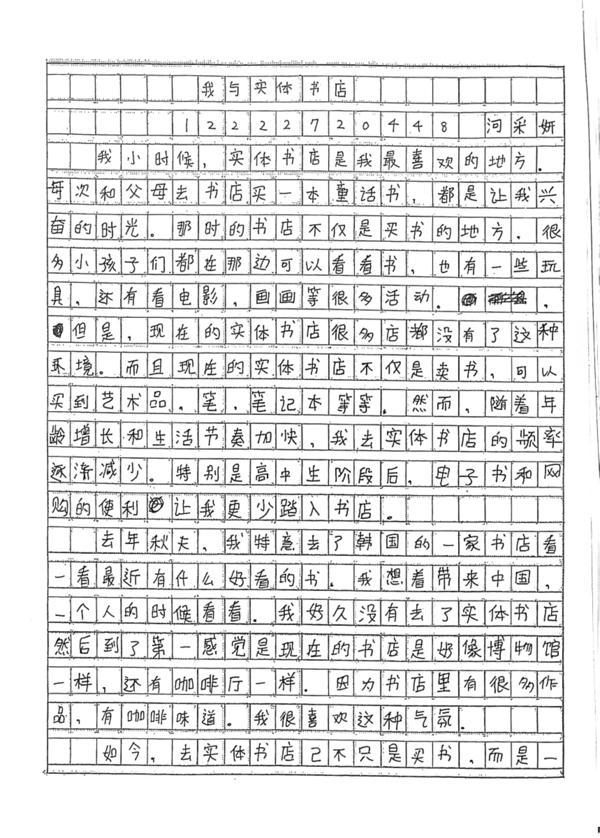 我与实体书店
1222272 0448 河采妍
我小时候，实体书店是我最喜欢的地方．
每次和父母去书店买一本童话书，都是让我兴
奋的时光．那时的书店不仅是买书的地方．很
多小孩子们都在那边可以看看书，也有一些玩
具，还有看电影，画画等很多活动．，
但是，现在的实体书店很多店都没有了这种
环境。而且现在的实体书店不仅是卖书，可以
买到艺术品，笔，笔记本等等．然而，随着年
龄增长和生活节奏加快，我去实体书店的频率
逐渐减少。特别是高中生阶段后，电子书和网
购的便利让我更少踏入书店．
去年秋天，我特意去了韩国的一家书店看
一看最近有什么好看的书．我想着带来中国，
一个人的时候看看．我好久没有去了实体书店
然后到了第一感觉是现在的书店是好像博物馆
一样，还有咖啡厅一样．因为书店里有很多作
品，有咖啡味道．我很喜欢这种气氛．
如今，去实体书店已不只是买书，而是一